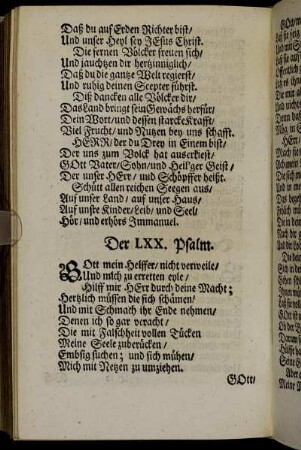 Daß du auf Erden Richter bist/
Und unser Heyl sey JEsus Christ.
Die fernen Völcker freuen sich/
Und jauchtzen dir hertzinniglich/
Daß du die gantze Welt regierst/
Und ruhig deinen Scepter führst.
Diß dancken alle Völcker dir/
Das Land bringt sein Gewächs herfür/
Dein Wort/ und dessen starcke Krafft
Viel Frucht/ und Nutzen bey uns schafft.
HERR/ der du Drey in Einem bist/
Der uns zum Volck hat auserkiest/
GOtt Vater/ Sohn/ und Heil'ger Geist/
Der unser HErr/ und Schöpffer heißt.
Schütt allen reichen Seegen aus/
Auf unser Land/ auf unser Haus/
Auf unsre Kinder/ Leib/ und Seel/
Hör/ und erhörs Immanuel.
Der LXX. Psalm.
GOtt mein Helffer/ nicht verweile/
Und mich zu erretten eyle/
Hilff mir HErr durch deine Macht;
Hertzlich müssen die sich schämen/
Und mit Schmath ihr Ende nehmen/
Denen ich so gar veracht/
Die mit Falschheit vollen Tücken
Meine Seele zuberücken/
Embsig suchen; und sich mühen/
Mich mit Netzen zu umziehen.
GOtt/